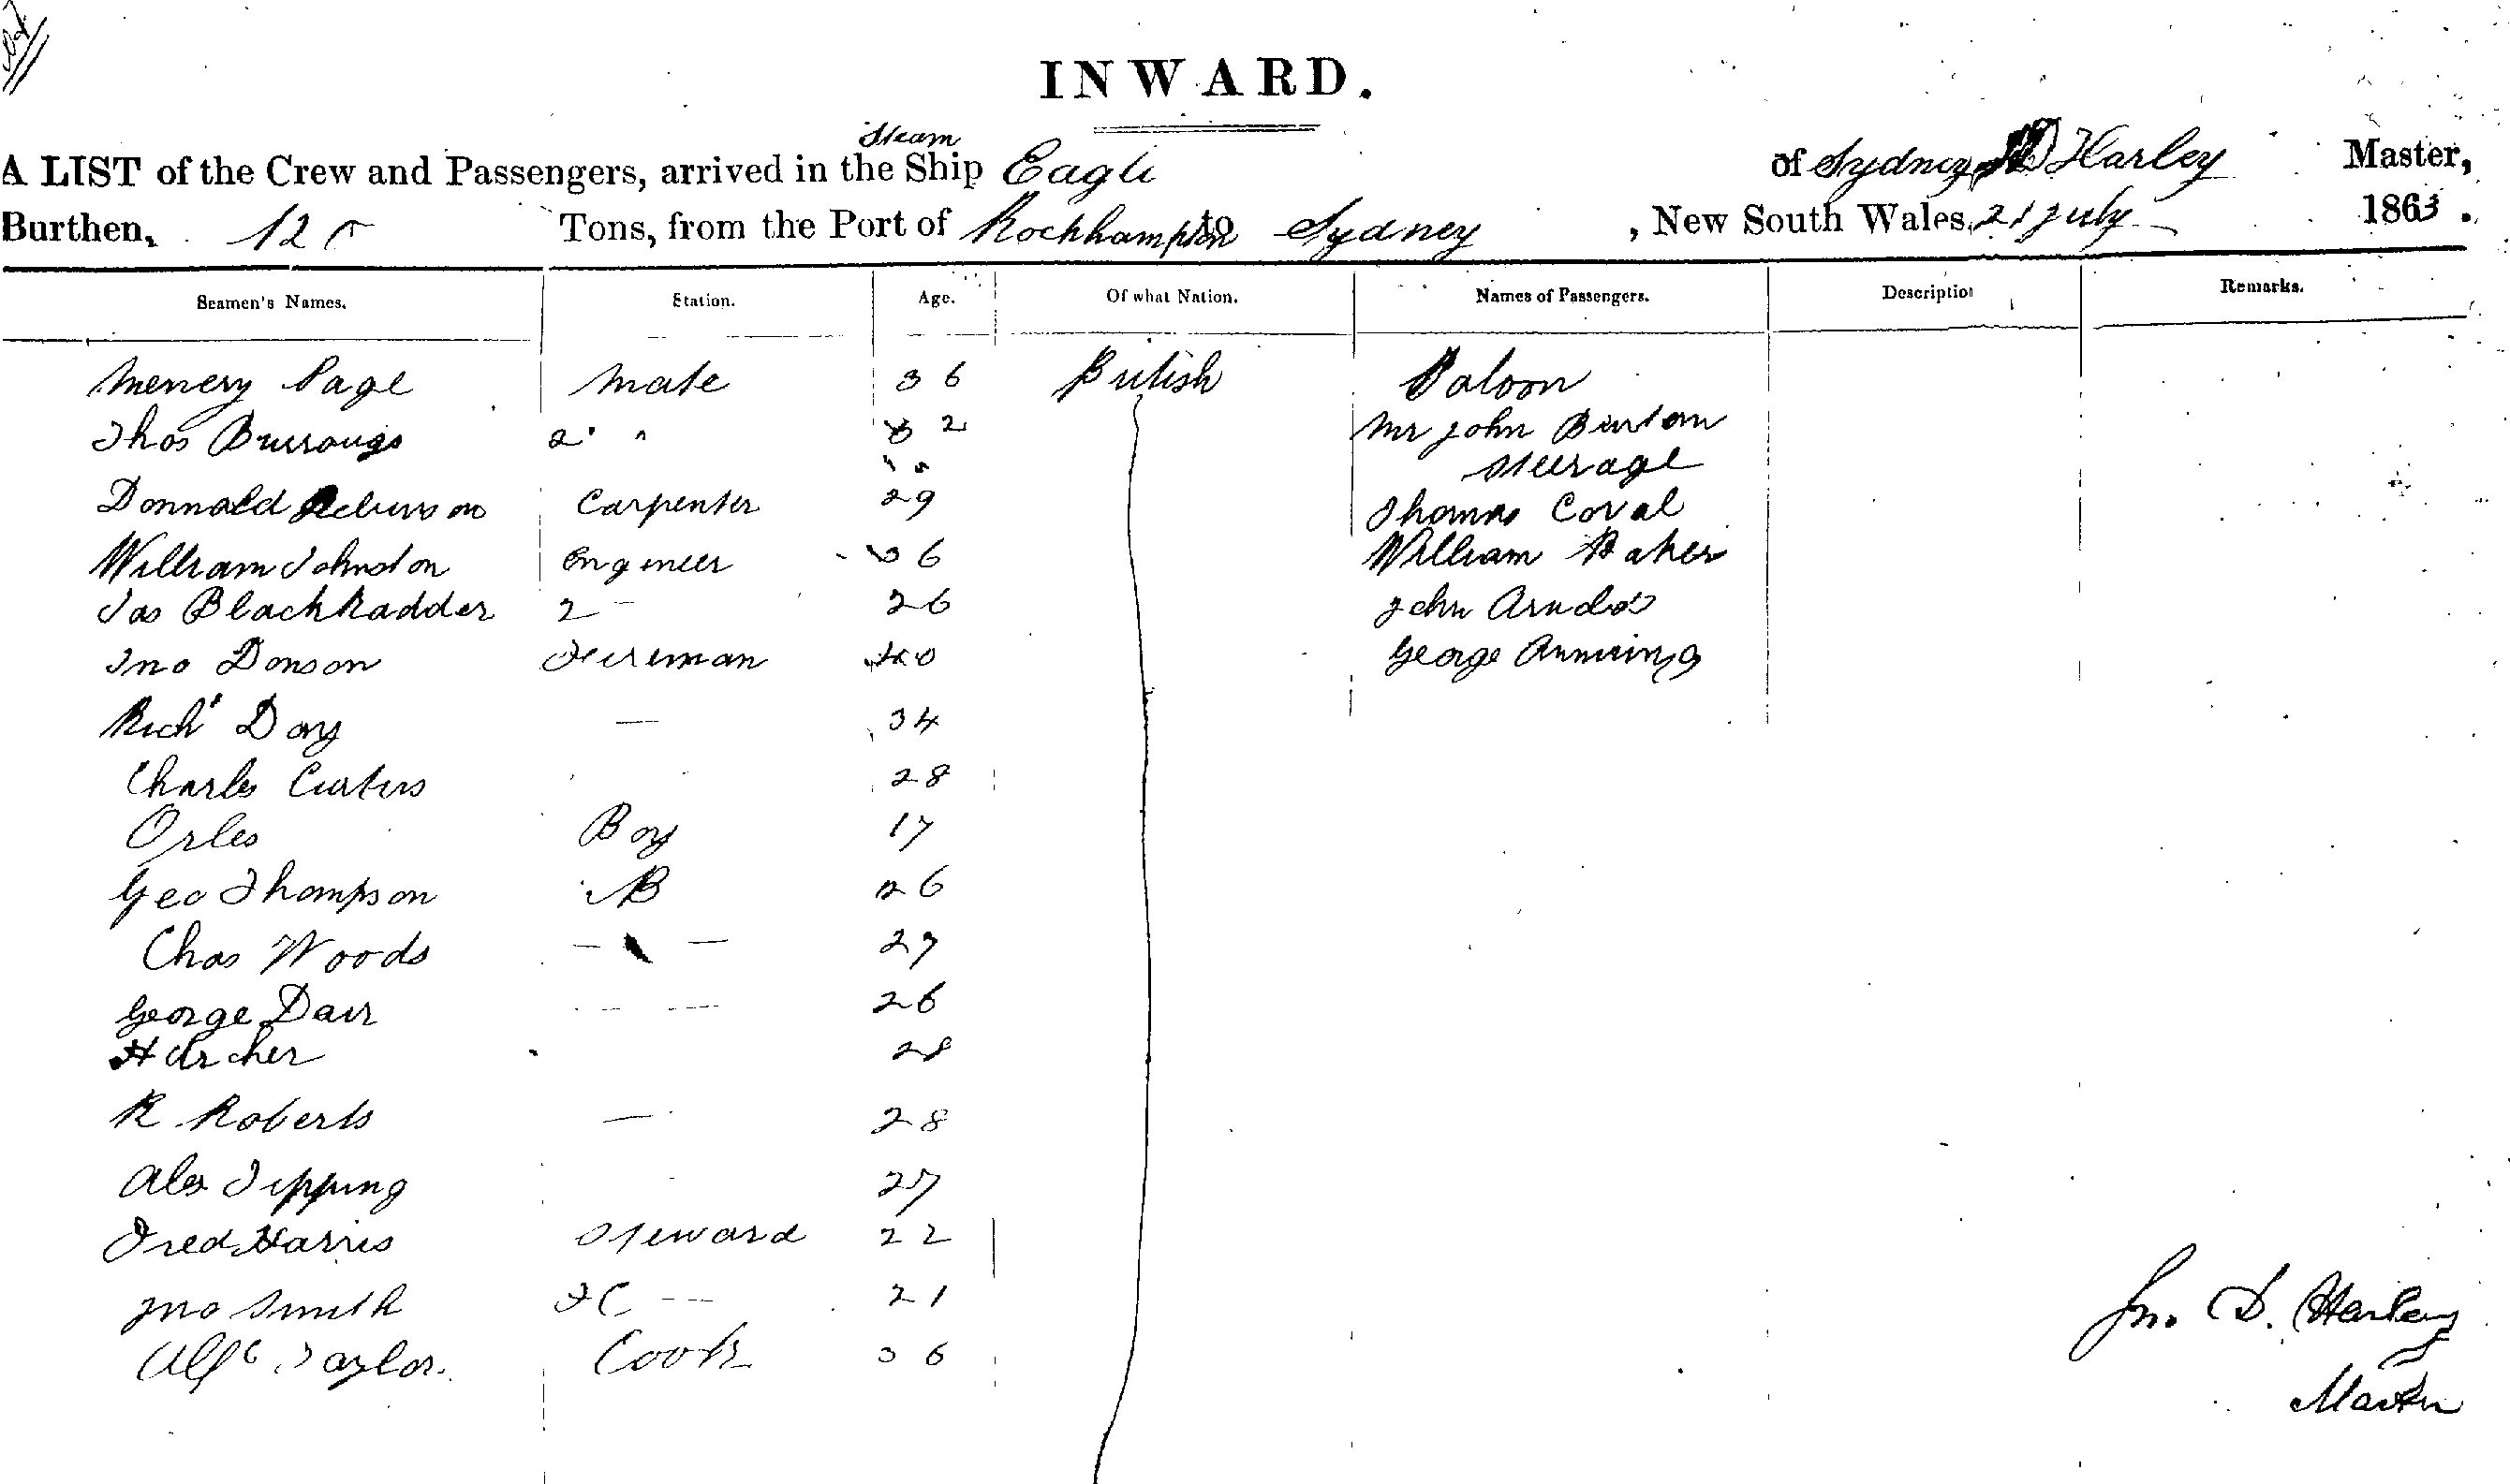 INWARD.
Steam
A LIST of the Crew and Passengers, arrived in the Ship Eagle of Sydney, Harley Master,
Burthen, 120 Tons, from the Port of Rockhampton to Sydney , New South Wales, 21 July 1863.
Seamen's Names. Station. Age. Of what Nation. Names of Passengers. Description Remarks.
Page Mate 36 British Saloon
Thos Burrougs 2 " 32 Mr John Burton
Steerage
Donnald Carpenter 29 Thomas Coval
William Johnston Engineer 36 William Baker
Jas BlackRadder 2 26 John
Jno Donson Fireman 40 George
Richd Day — 34
Charles Curtis 28
Orles Boy 17
Geo Thompson AB 26
Chas Woods — — 27
George Dair 26
H Urcher 28
R Roberts — 28
Alex Tipping 27
Fred Harris Steward 22
Jno Smith FC — 21
Alfd Taylor. Cook 36
Jn. D. Harley
Master